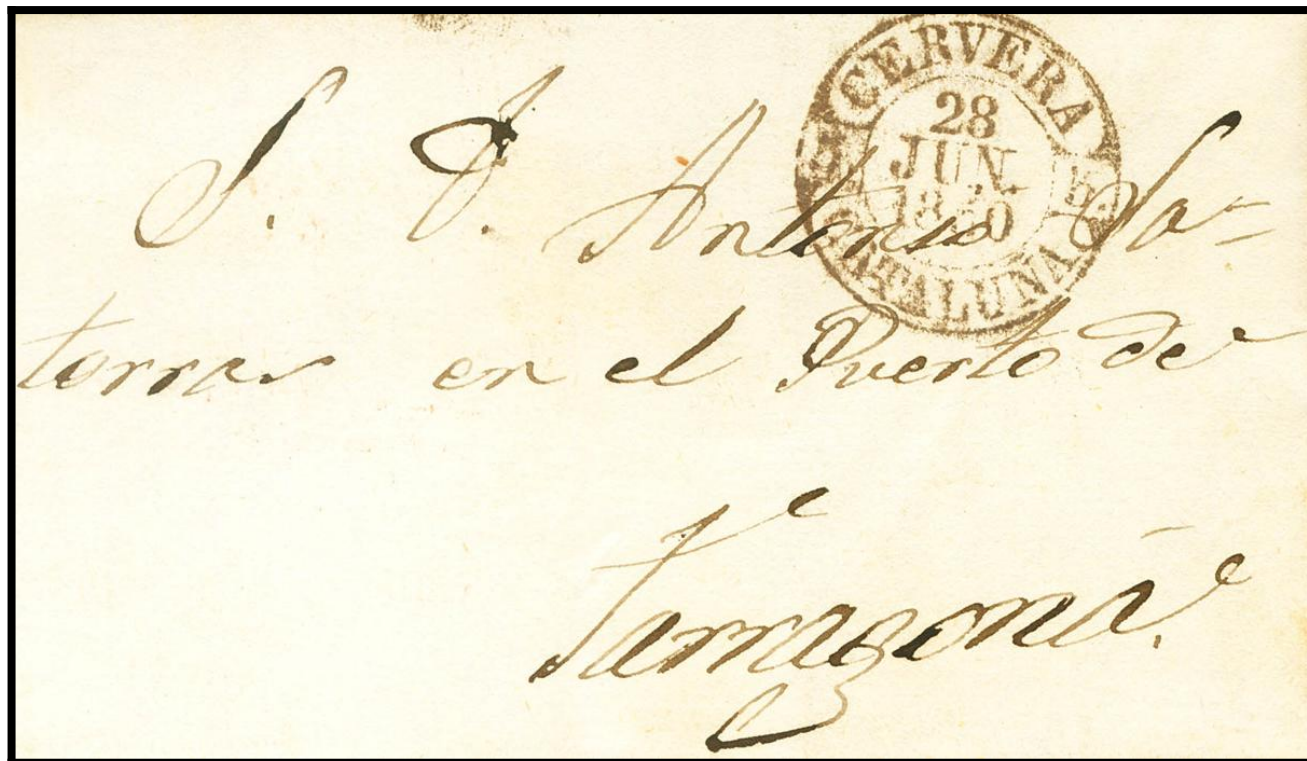 CERVERA
28
JUN.
CATALUÑA
S. D. Antonio Sa=
torras en el Puerto de
Tarragona.